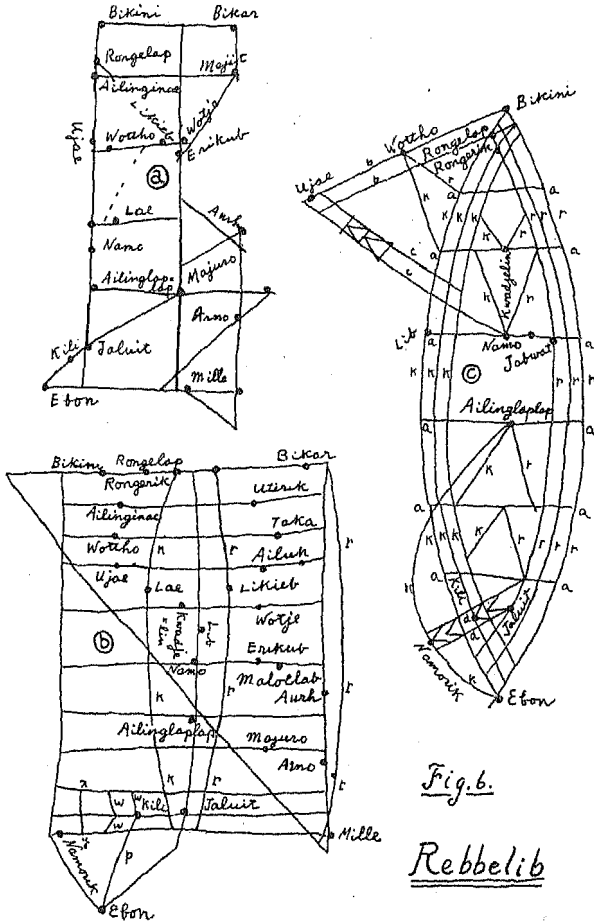 Bikini Bikar
Rongelap Mejit
Ailinginae
Likieb Wotje
Ujae Wottho Erikub
a
Lae Aurh
Namo
Ailinglap=
lap Majuro
Arno
Kili Jaluit
Ebon Mille
Bikini Rongelap Bikar
Rongerik
Utirik
Ailinginae
Taka
Wottho k r r
Ujae Ailuk
Lae Likieb
Kwadje
=lin Lib Wotje
b
Erikub
Namo
Maloelab
k r Aurh r
Ailinglaplap
Majuro
Arno
k r r
r w w Kili Jaluit
w
r Mille
Namorik p
Ebon
Bikini
Wottho Rongelap
b Rongerik
b r
Ujae k a a
k k k k r r r r
c a Kwadjelin a
c k r
Lib a Namo Jabwat a
k k k c r r r
Ailinglaplap
a a
k r
a a
k k k k r r r r
k a a
Kili
d Jaluit
d
Namorik
k
Ebon
Fig. 6.
Rebbelib